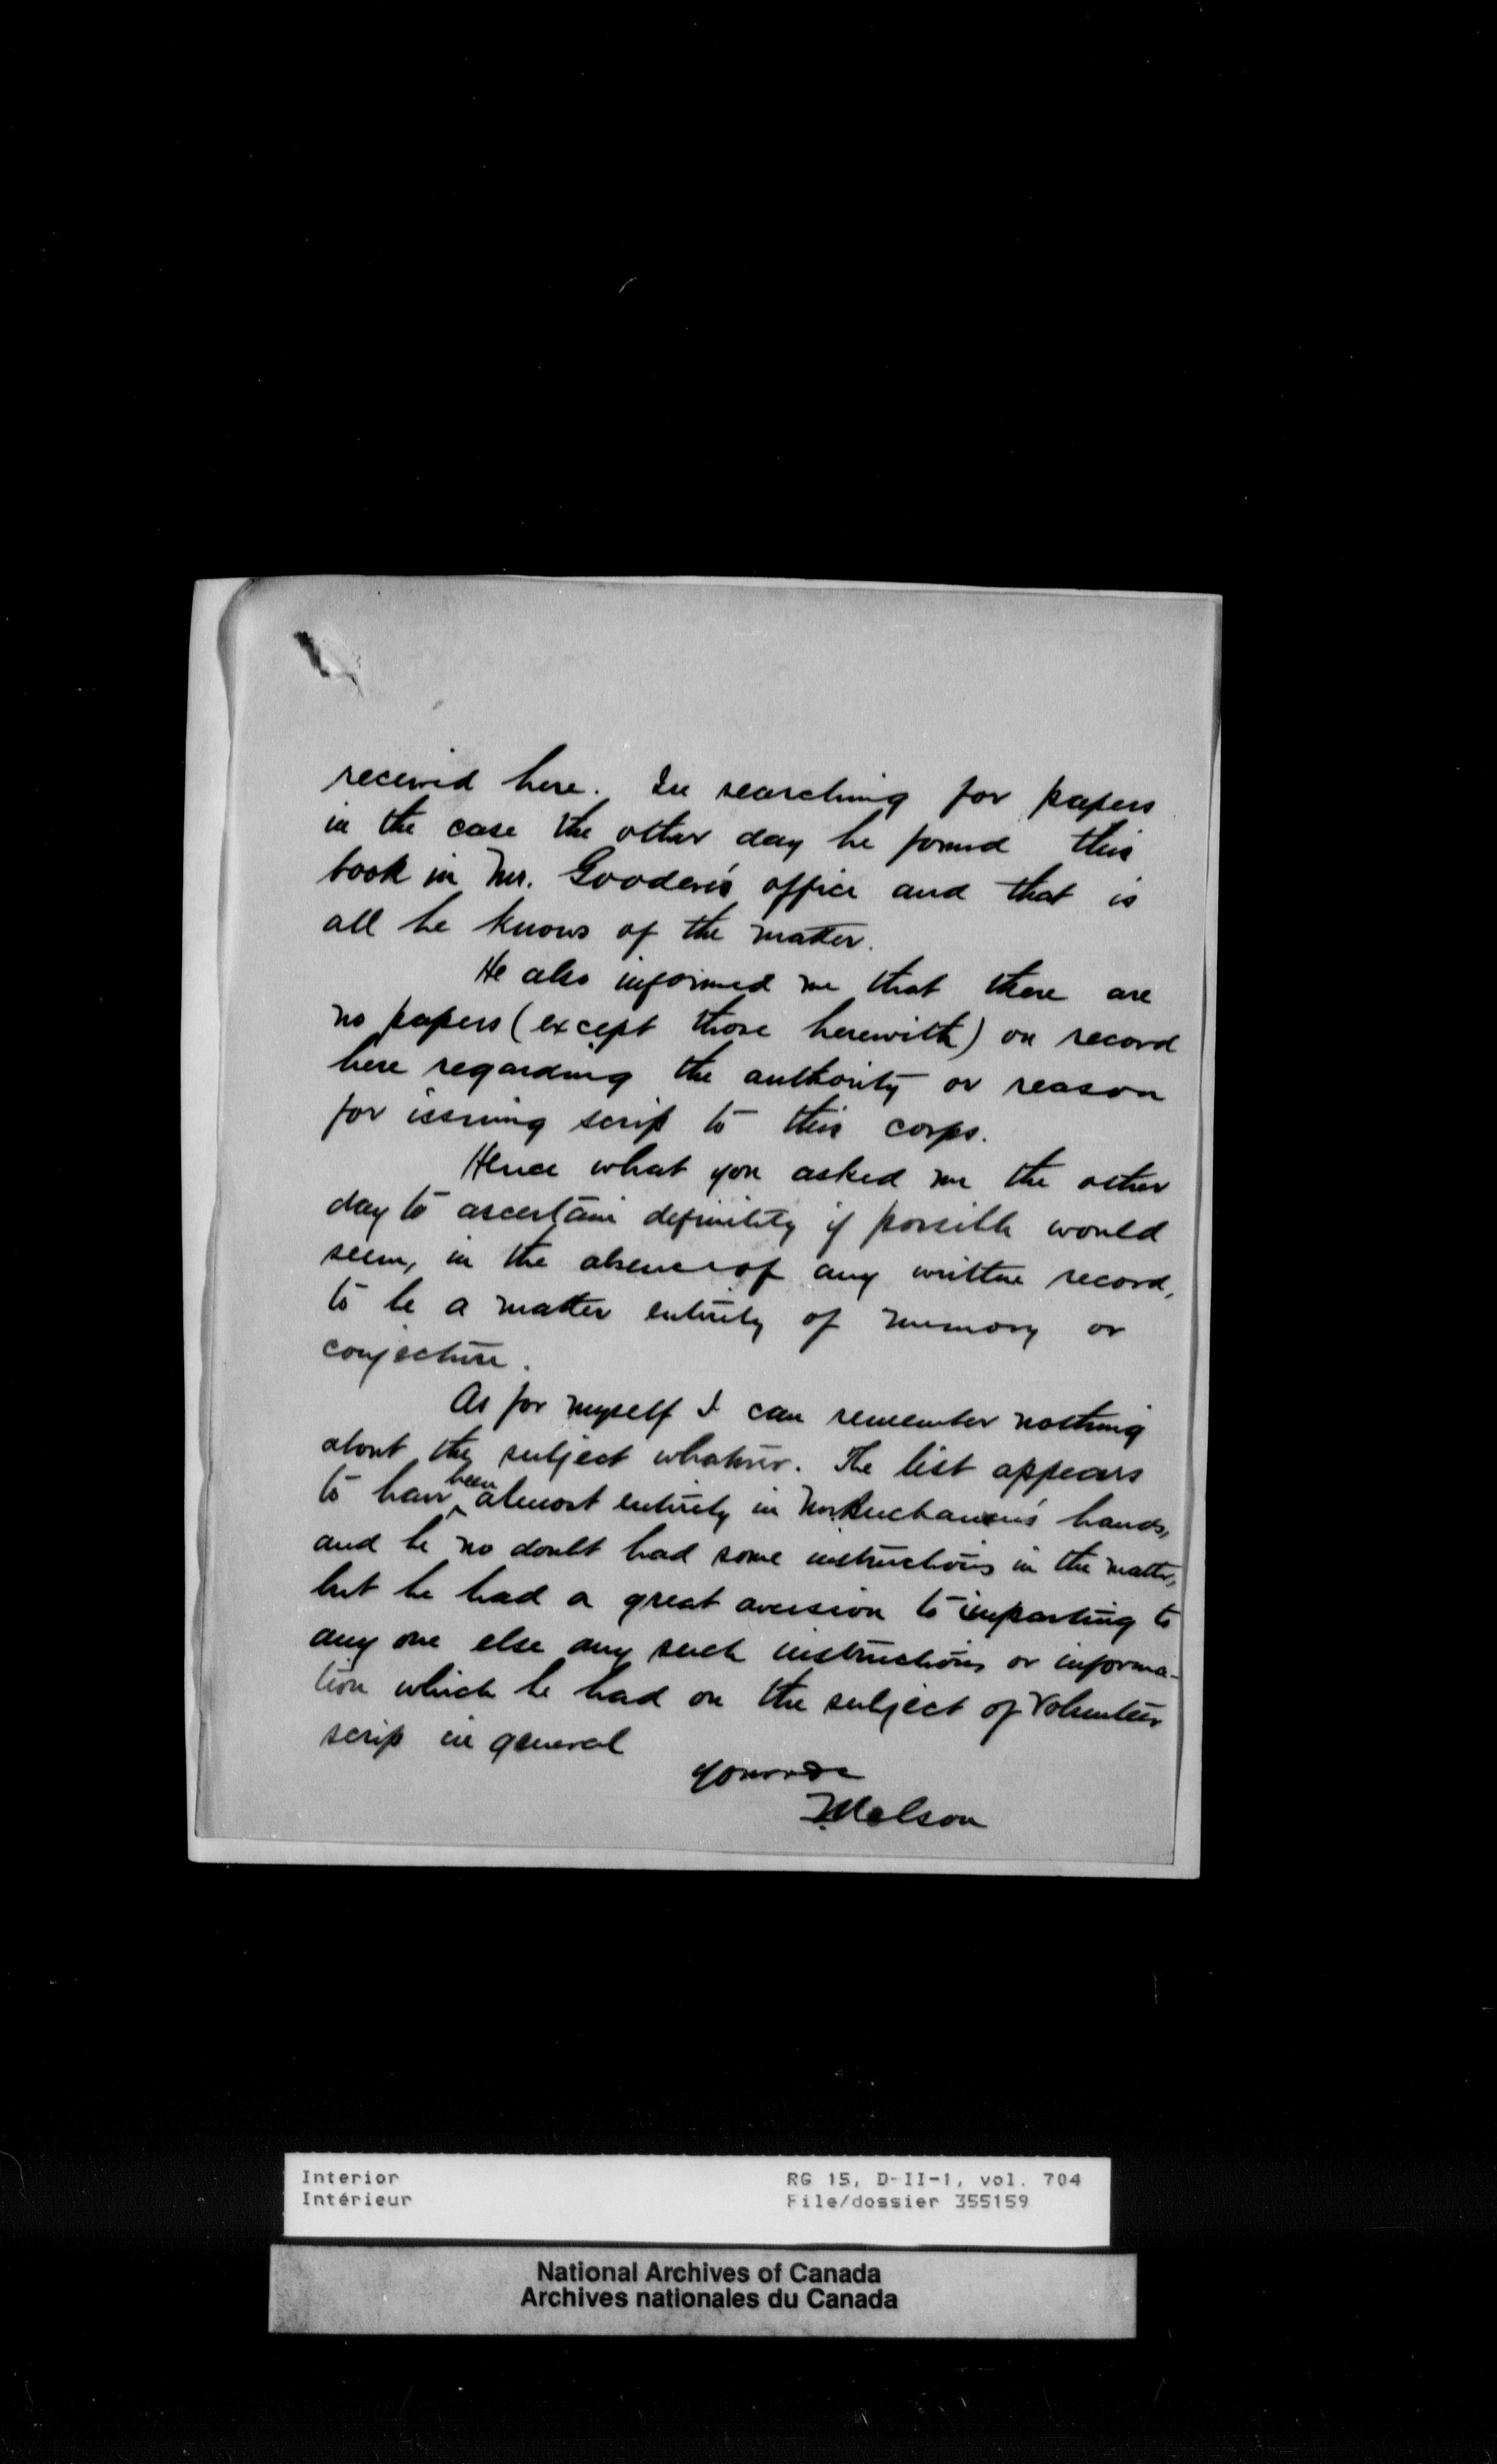 received here. In searching for papers
in the case the other day he found this
book in Mr. Gooden's office and that is
all he knows of the matter.
He also informed me that there are
no papers (except those herewith) on record
here regarding the authority or reason
for issuing scrip to this corps.
Hence what you asked me the other
day to ascertain definitely if possible would
seem, in the absence of any written record,
to be a matter entirely of memory or
conjecture.
As for myself I can remember nothing
about the subject whatever. The list appears
to have been almost entirely in Mr. Buchanan's hands,
and he no doubt had some instructions in the matter,
but he had a great aversion to imparting to
any one else any such instructions or informa-
tion which he had on the subject of Volunteer
scrip in general
Yours
Nelson
Interior
Intérieur
RG 15, D-II-1, vol. 704
File/dossier 355159
National Archives of Canada
Archives nationales du Canada